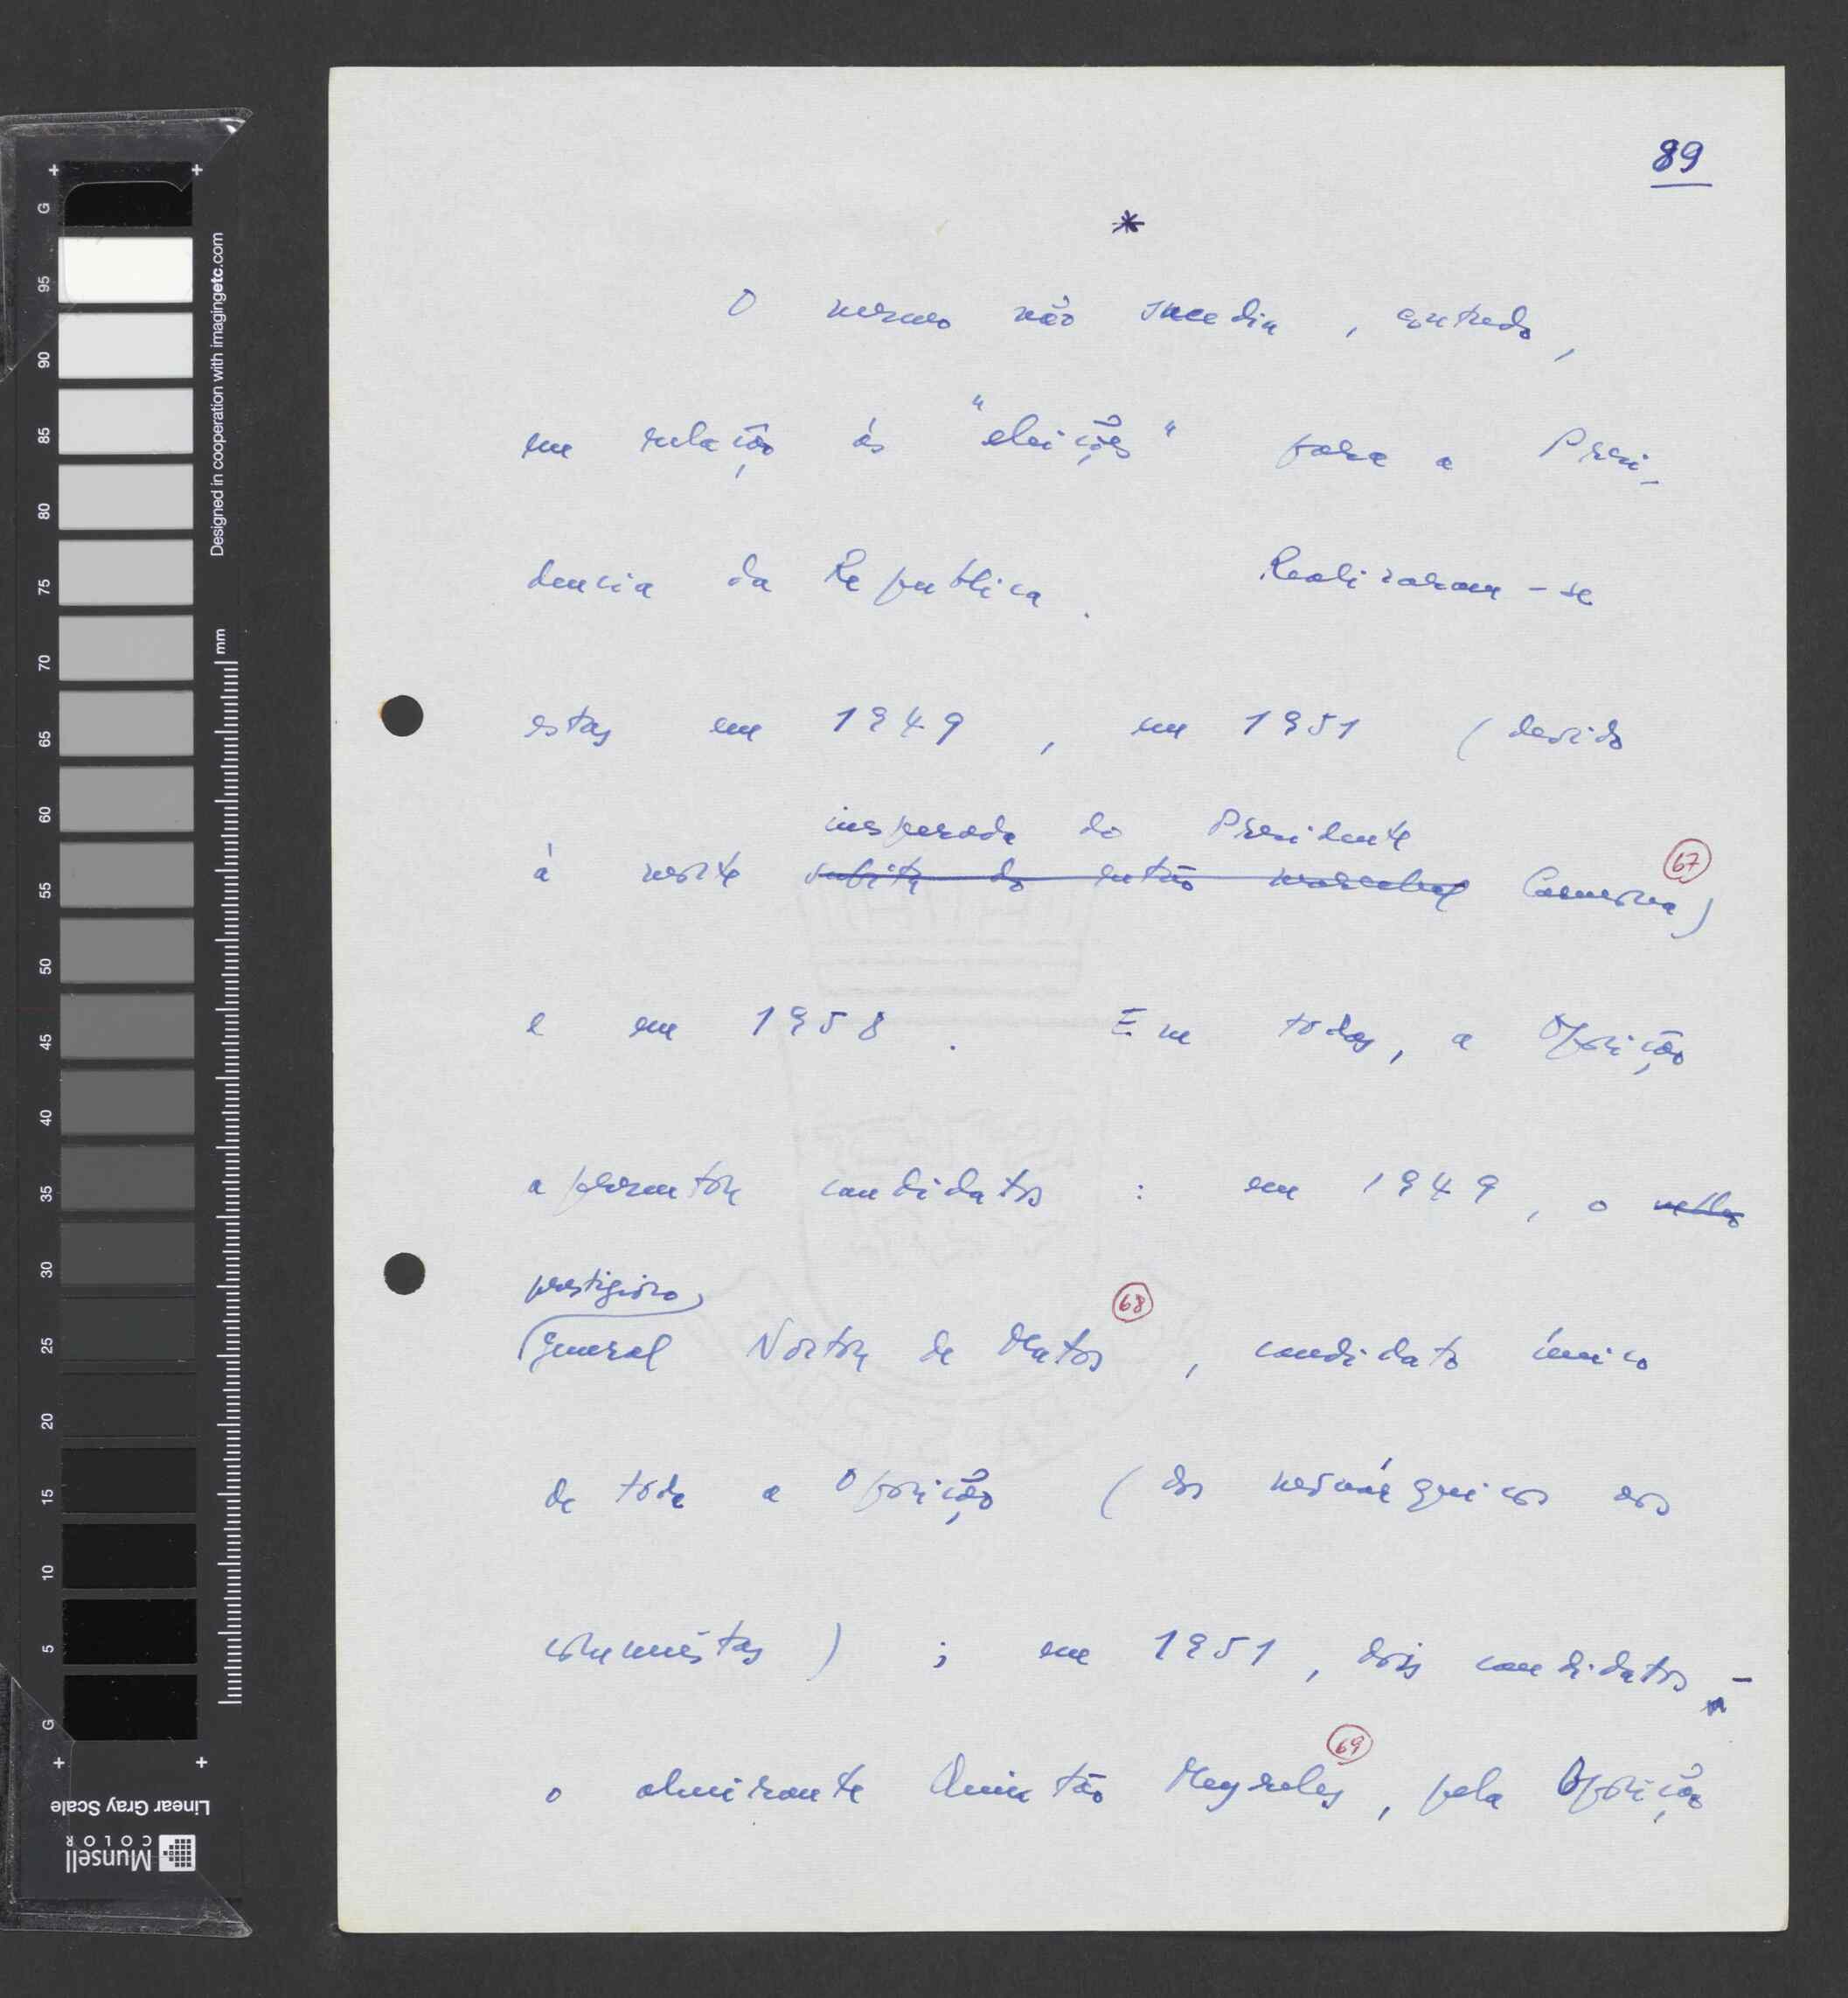 89
*
O mesmo não sucedia, contudo,
em relação às "eleições" para a Presi-
dencia da Republica. Realizaram-se
estas em 1949, em 1951 (devido
inesperada do Presidente
à morte subita do então marechal Carmona) 67
e em 1958. Em todas, a Oposição
apresentou candidatos: em 1949, o velho
prestigioso
general Norton de Matos 68, candidato único
de toda a Oposição (dos monárquicos aos
comunistas); em 1951, dois candidatos –
o almirante Quintão Meyreles 69, pela Oposição
G
95
90
85
80
75
70
65
60
55
50
45
40
35
30
25
20
15
10
5
G
mm
Designed in cooperation with imagingetc.com
Linear Gray Scale
Munsell
COLOR